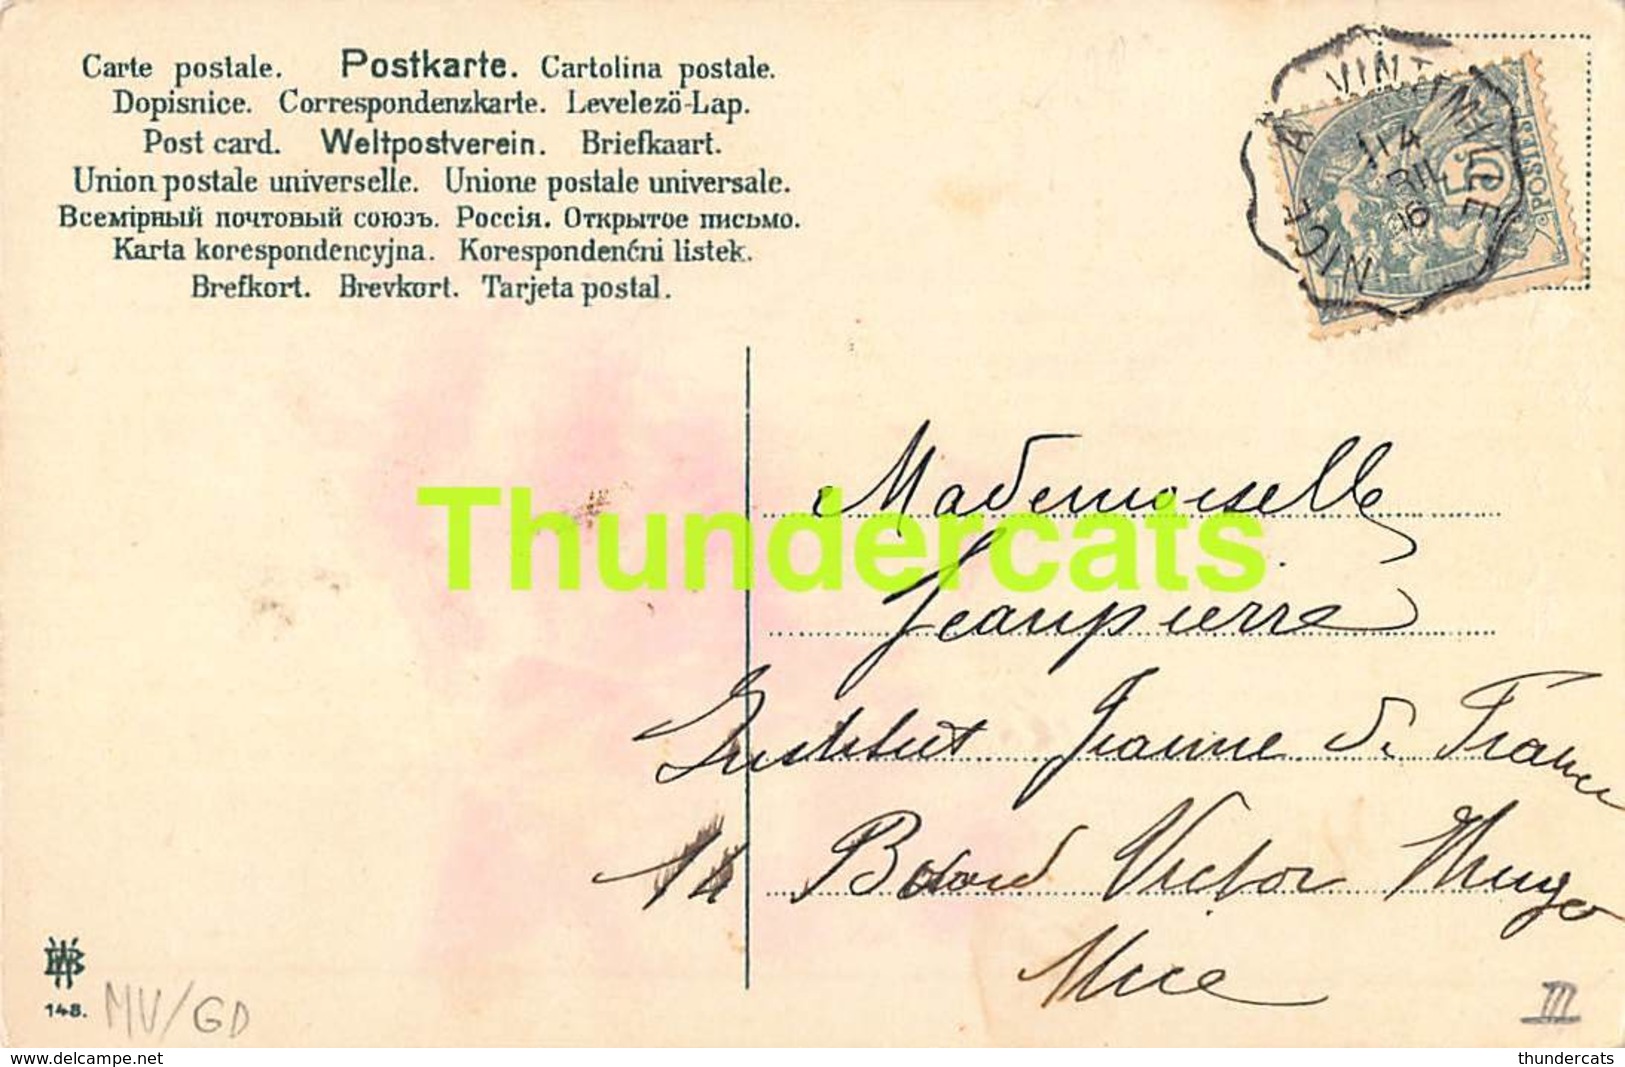 Carte postale. Postkarte. Cartolina postale.
Dopisnice. Correspondenzkarte. Levelező-Lap.
Post card. Weltpostverein. Briefkaart.
Union postale universelle. Unione postale universale.
Всемірный почтовый союзъ. Россія. Открытое письмо.
Karta korespondencyjna. Korespondenčni listek.
Brefkort. Brevkort. Tarjeta postal.
NICE A VINTIMILLE
POSTES
5c
Thundercats
Mademoiselle
Jeanpierre
Institut Jeanne de France
14 Boulevard Victor Hugo
Nice
148.
MV/GD
III
www.delcampe.net
thundercats